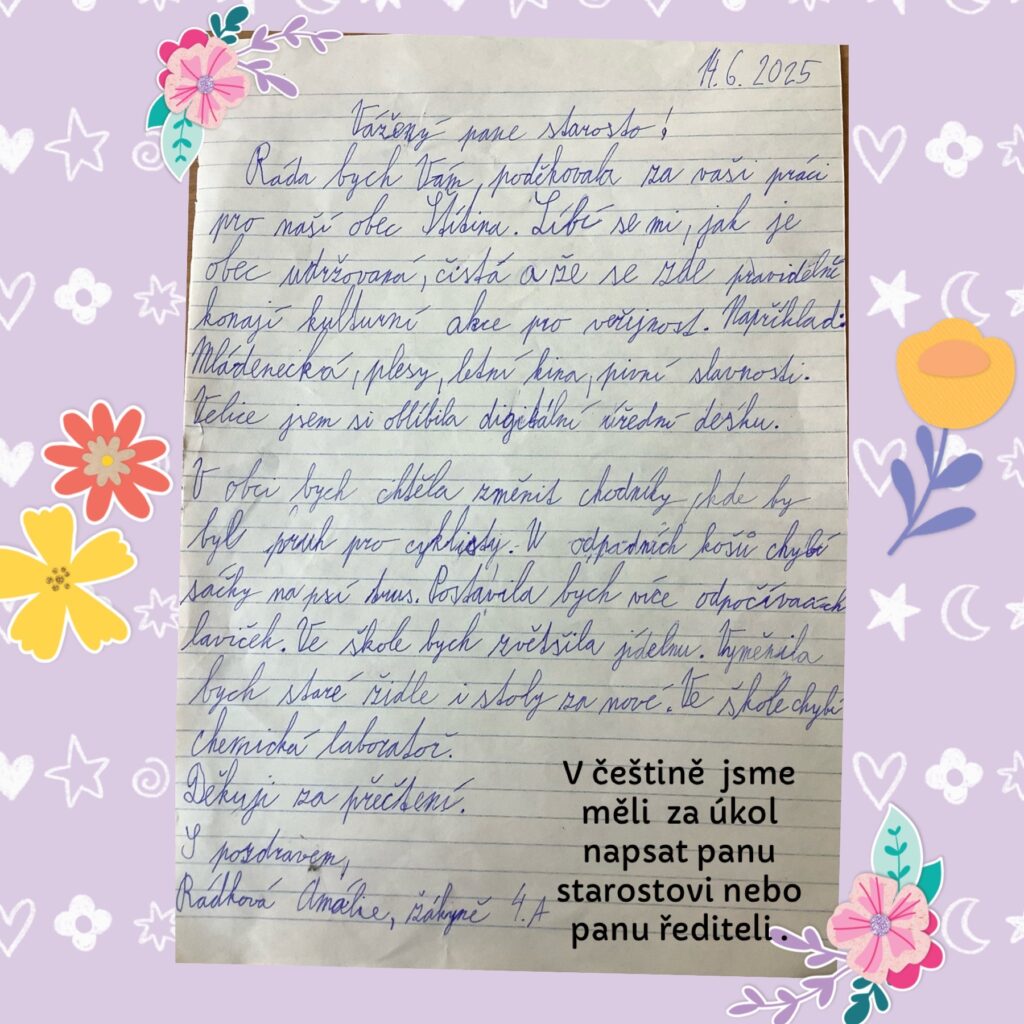 14.6.2025
Vážený pane starosto!
Ráda bych Vám, poděkovala za vaši práci
pro naší obec Štítina. Líbí se mi, jak je
obec udržovaná, čistá a že se zde pravidělně
konají kulturní akce pro veřejnost. Například:
Mládenecká, plesy, letní kina, pivní slavnosti.
Velice jsem si oblíbila digitální úřední desku.
V obci bych chtěla změnit chodníky, kde by
byl pruh pro cyklisty. U odpadních košů chybí
sáčky na psí trus. Postavila bych více odpočívacích
laviček. Ve škole bych zvětšila jídelnu. Vyměnila
bych staré židle i stoly za nové. Ve škole chybí
chemická laboratoř.
Děkuji za přečtení.
S pozdravem,
Rádková Amálie, žákyně 4.A
V češtině jsme
měli za úkol
napsat panu
starostovi nebo
panu řediteli.